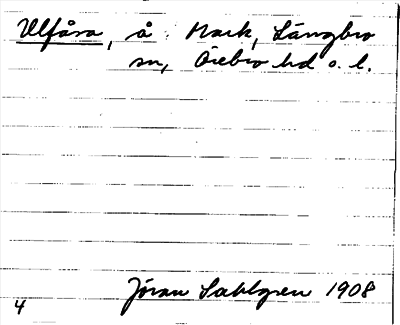 Ulfåsa, å. Mark, Längbro
sn, Örebro hd o. l.
Jöran Sahlgren 1908
4